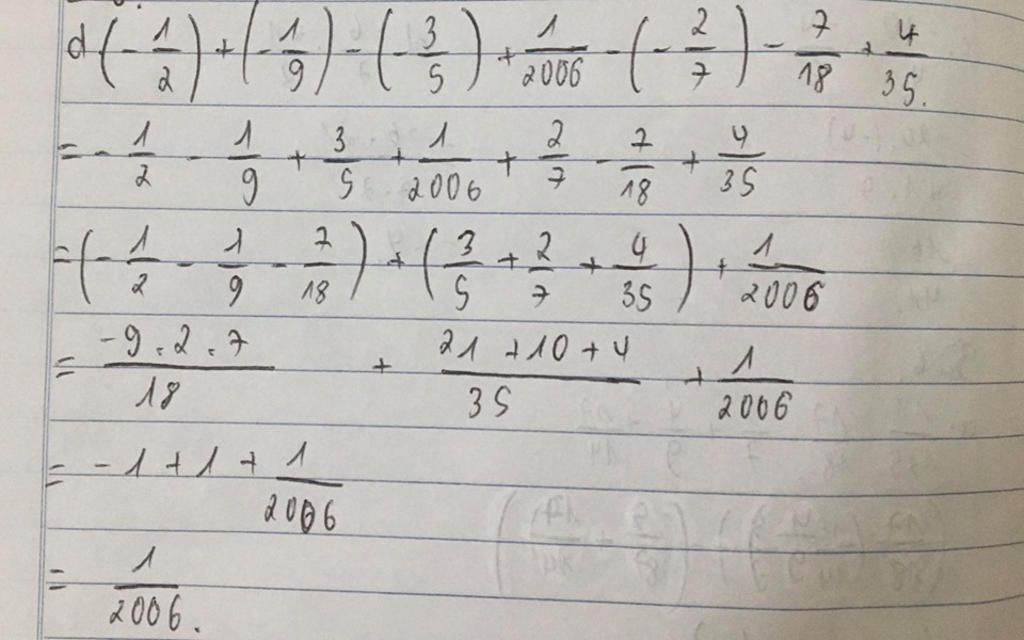 d. (-1/2) + (-1/9) - (-3/5) + 1/2006 - (-2/7) - 7/18 + 4/35.
= -1/2 - 1/9 + 3/5 + 1/2006 + 2/7 - 7/18 + 4/35
= (-1/2 - 1/9 - 7/18) + (3/5 + 2/7 + 4/35) + 1/2006
= -9.2.7/18 + 21+10+4/35 + 1/2006
= -1 + 1 + 1/2006
= 1/2006.